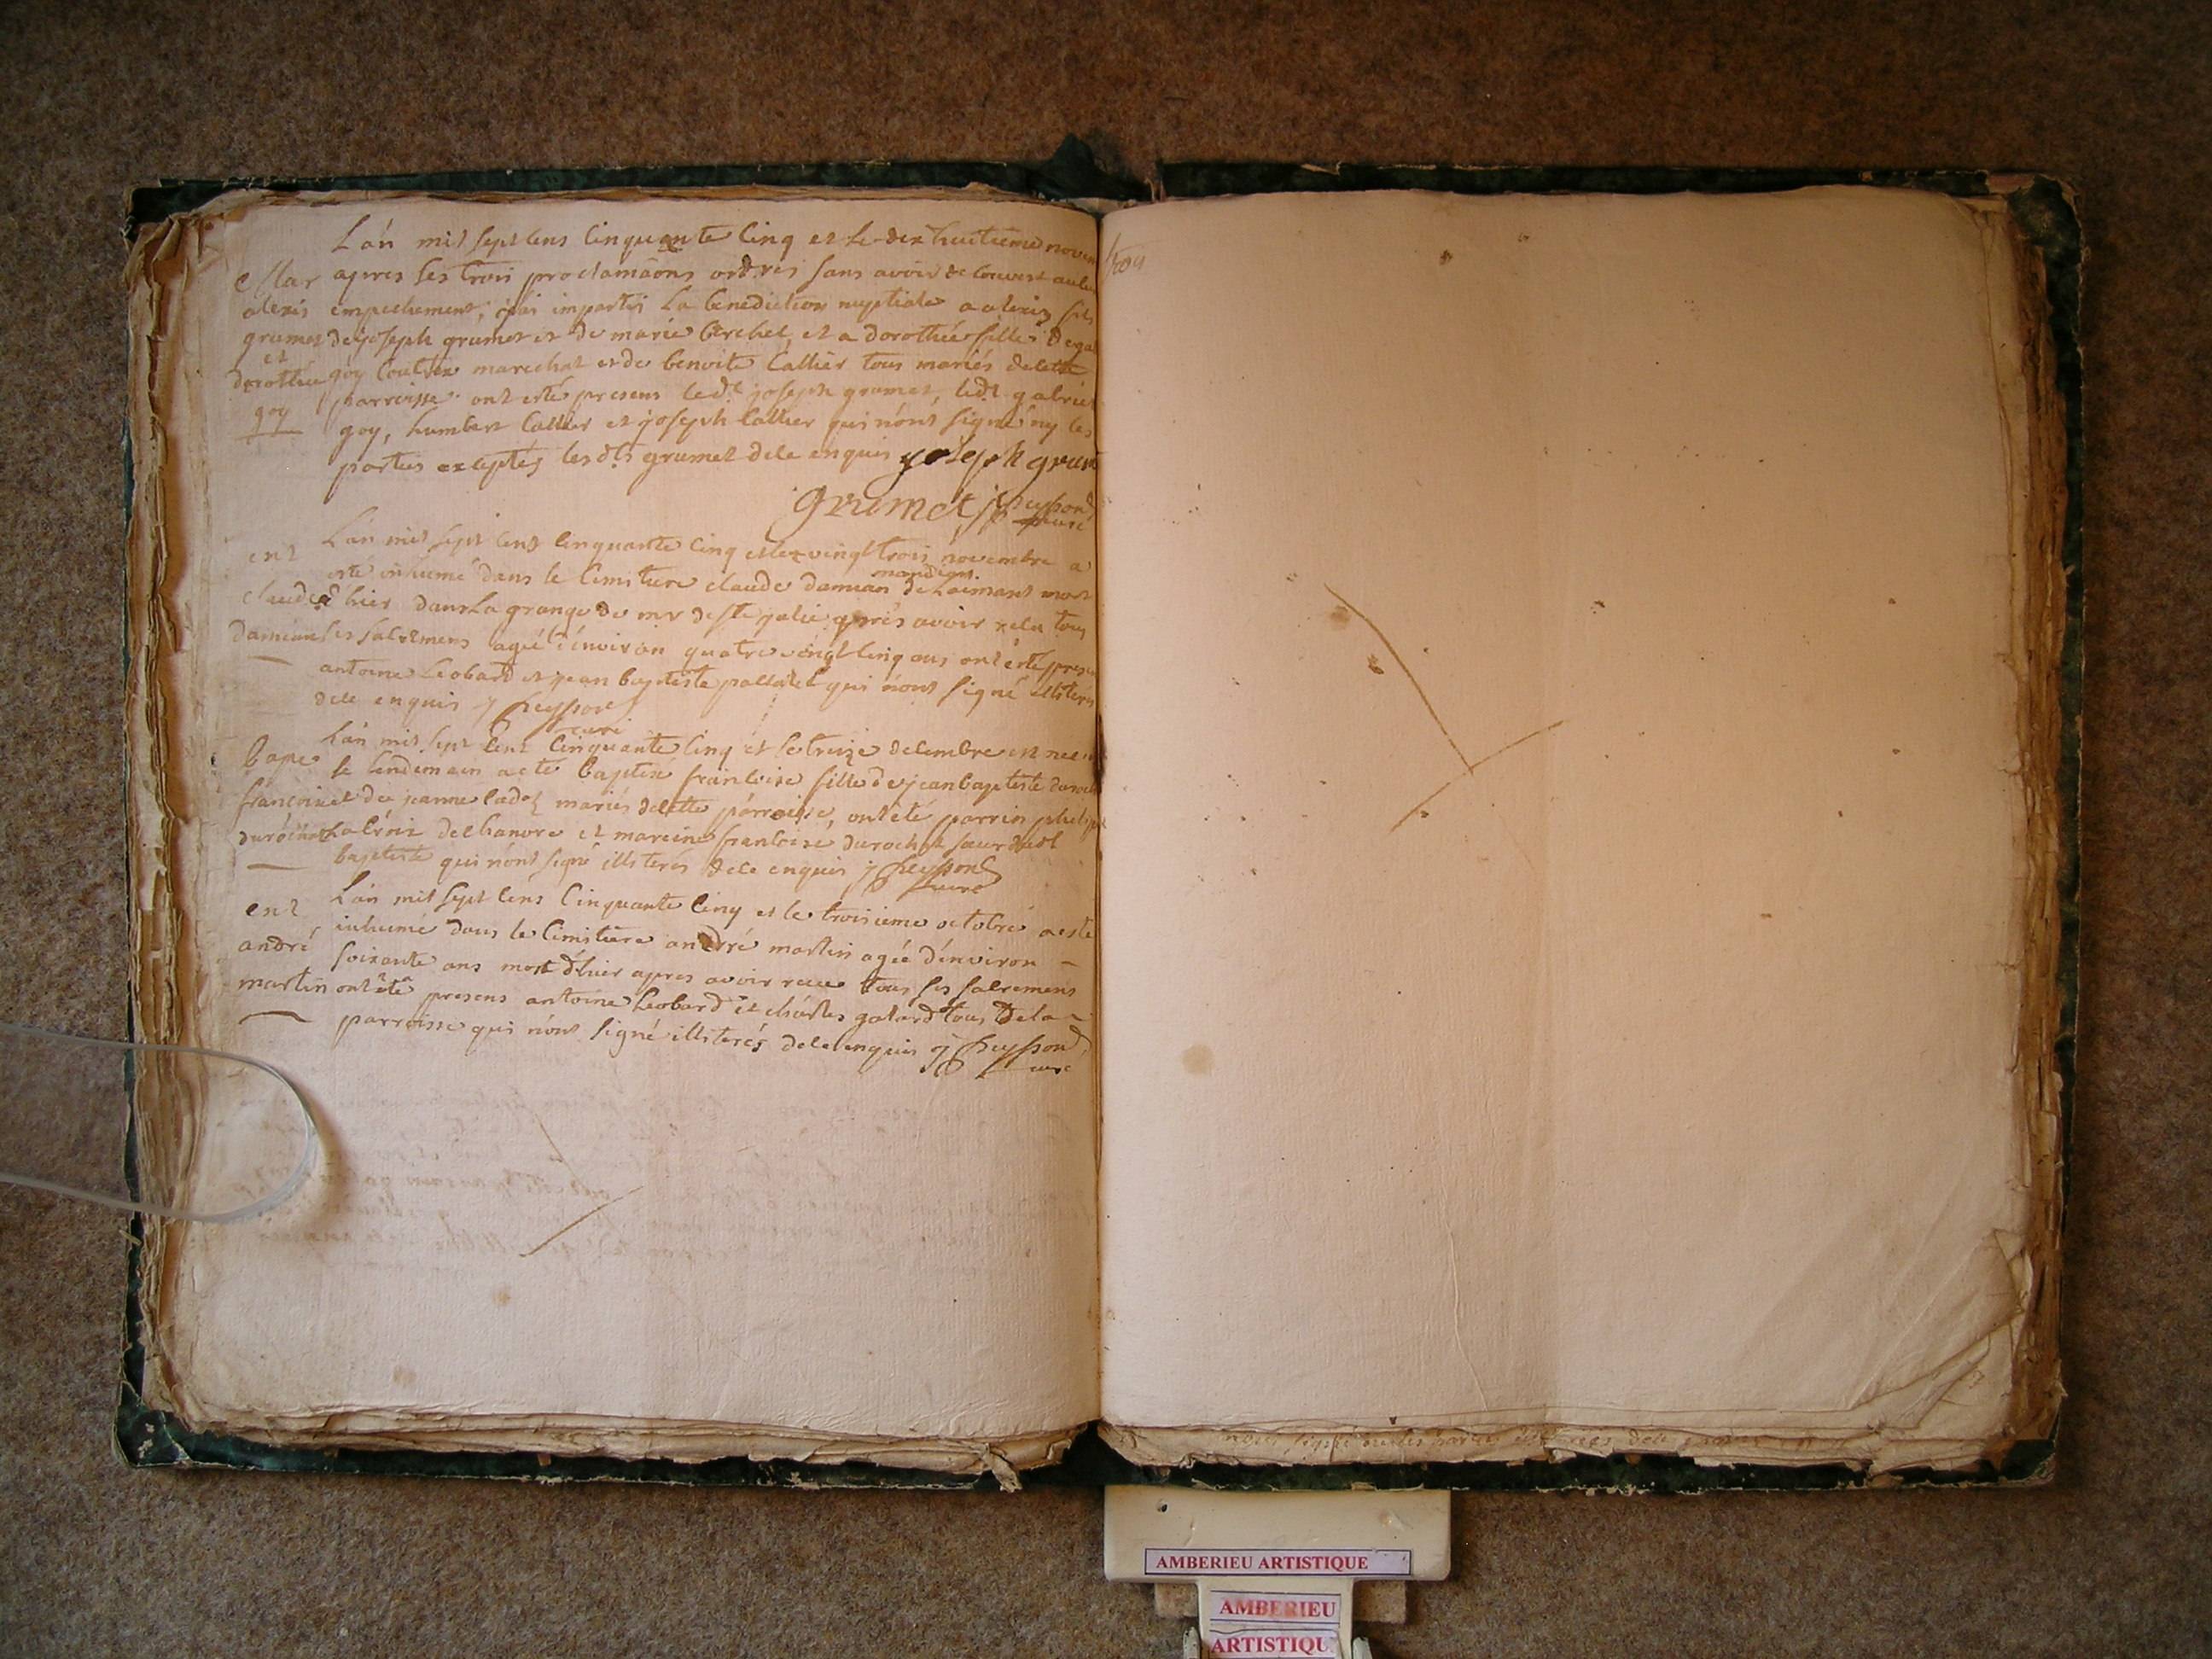 L'an mil sept cens cinquante cinq et le dix huitieme novem
Mar apres les trois proclamaons ordres sans avoir decouvert aucun
alexis empechement, j'ai imparti la benediction nuptiale a alexis fils
grumet de joseph grumet et de marie et a dorothée fille de ga
et
dorothée goy marechal et de benoite Callier tous mariés de cette
goy parroisse ont esté presens led.t joseph grumet, led.t gabriel
goy, humbert Callier et joseph Callier qui n'ont signé ny les
parties exceptés les d.ts grumet de ce enquis joseph grum
grumet j Cheysson
curé
L'an mil sept cens cinquante cinq et le vingt trois novembre a
ent esté inhumé dans le cimetiere claude damian mandiant de mort
claude d'hier dans la grange de mr apres avoir recu tous
damian ses sacremens agé d'environ quatre vingt cinq ans ont été presens
antoine Leobard et jean baptiste qui n'ont signé illiterés
de ce enquis j Cheysson
curé
L'an mil sept cens cinquante cinq et le treize decembre est née
bape le lendemain a eté baptisé francoise fille de jean baptiste duroch
francoise et de jeanne mariés de cette parroisse, ont été parrin
durochat de et mareine francoise durochat sœur dud.t
baptiste qui n'ont signé illiterés de ce enquis j Cheysson
curé
L'an mil sept cens cinquante cinq et le troisieme octobre a esté
ent inhumé dans le cimetiere andré martin agée d'environ
andré soixante ans mort d'hier apres avoir receu tous ses sacremens
martin ont été presens antoine Leobard et charles galard tous de la
parroisse qui n'ont signé illiterés de ce enquis j Cheysson
curé
AMBERIEU ARTISTIQUE
AMBERIEU
ARTISTIQU